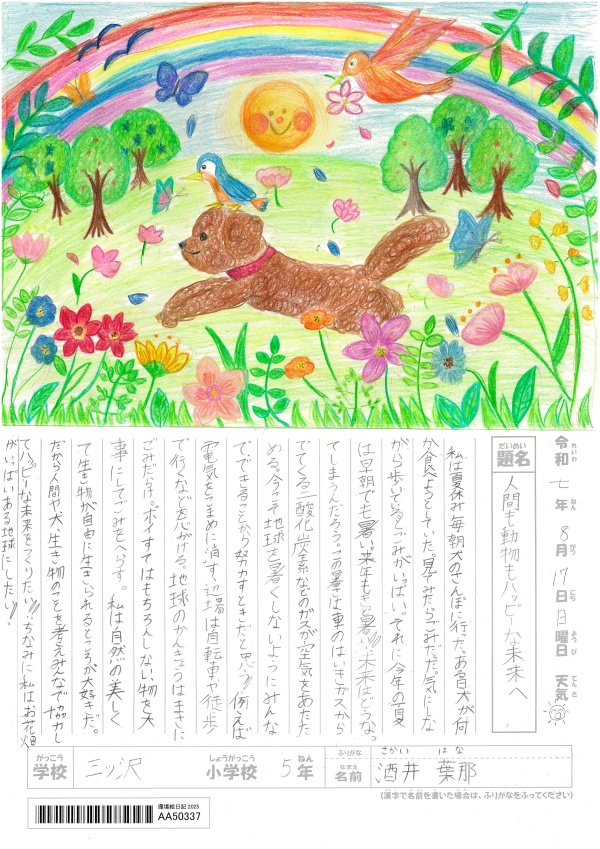 令和 七年 8月 17日 日曜日 天気
れいわ ねん がつ にち ようび てんき
だいめい
題名
人間も動物もハッピーな未来へ
私は夏休み毎朝犬のさんぽに行った。ある日犬が何
か食べようとしていた。見てみたらごみだった。気にしな
がら歩いているとごみがいっぱい。それに今年の夏
は早朝でも暑い。来年もきっと暑い!!未来はどうなっ
てしまうんだろう。この暑さは車のはいきガスから
でてくる二酸化炭素などのガスが空気をあたた
める。今こそ地球を暑くしないようにみんな
で、できることから努力すときだと思う!!例えば
電気をこまめに消す、近場は自転車や徒歩
で行くなど心がける。地球のかんきょうはまさに
ごみだらけ。ポイすてはもちろんしない物を大
事にしてごみをへらす。私は自然の美しく
て生き物が自由に生きられるところが大好きだ。
だから人間や犬、生き物のことを考えみんなで協力し
てハッピーな未来をつくりたい!!ちなみに私はお花畑
がいっぱいある地球にしたい!!
がっこう
学校
三ッ沢
しょうがっこう
小学校
5
ねん
年
ふりがな
さかい はな
なまえ
名前
酒井 葉那
(漢字で名前を書いた場合は、ふりがなをふってください)
環境絵日記 2025
AA50337